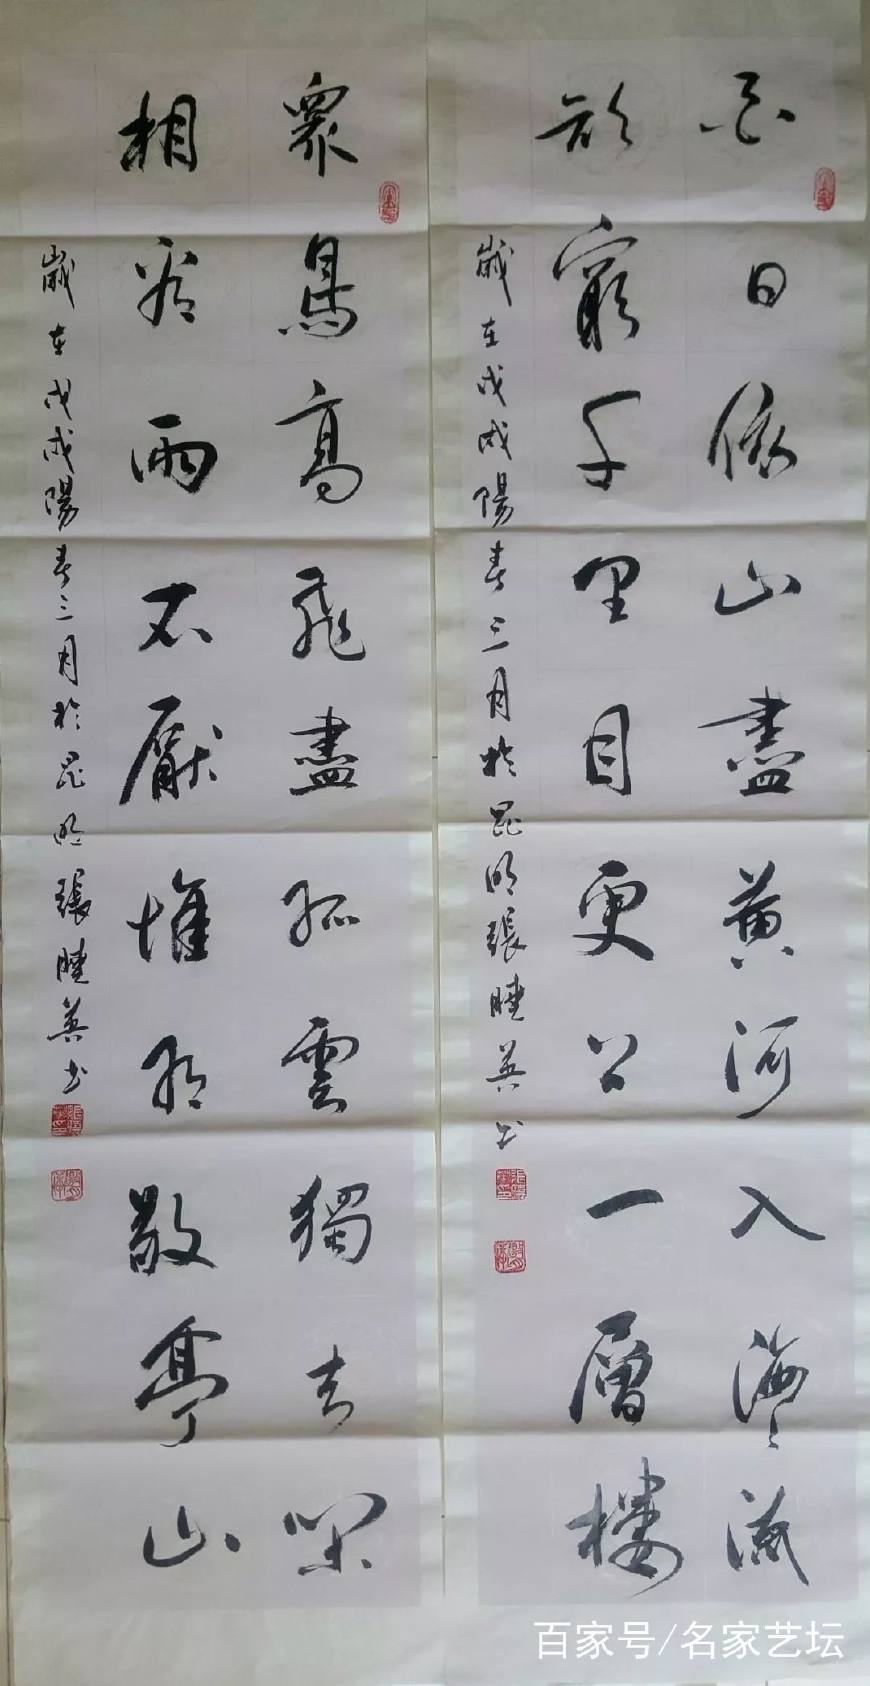 白日依山盡黃河入海流
欲窮千里目更上一層樓
歲在戊戌陽春三月於昆明張曉英書
眾鳥高飛盡孤雲獨去閑
相看兩不厭惟有敬亭山
歲在戊戌陽春三月於昆明張曉英書
百家号/名家艺坛